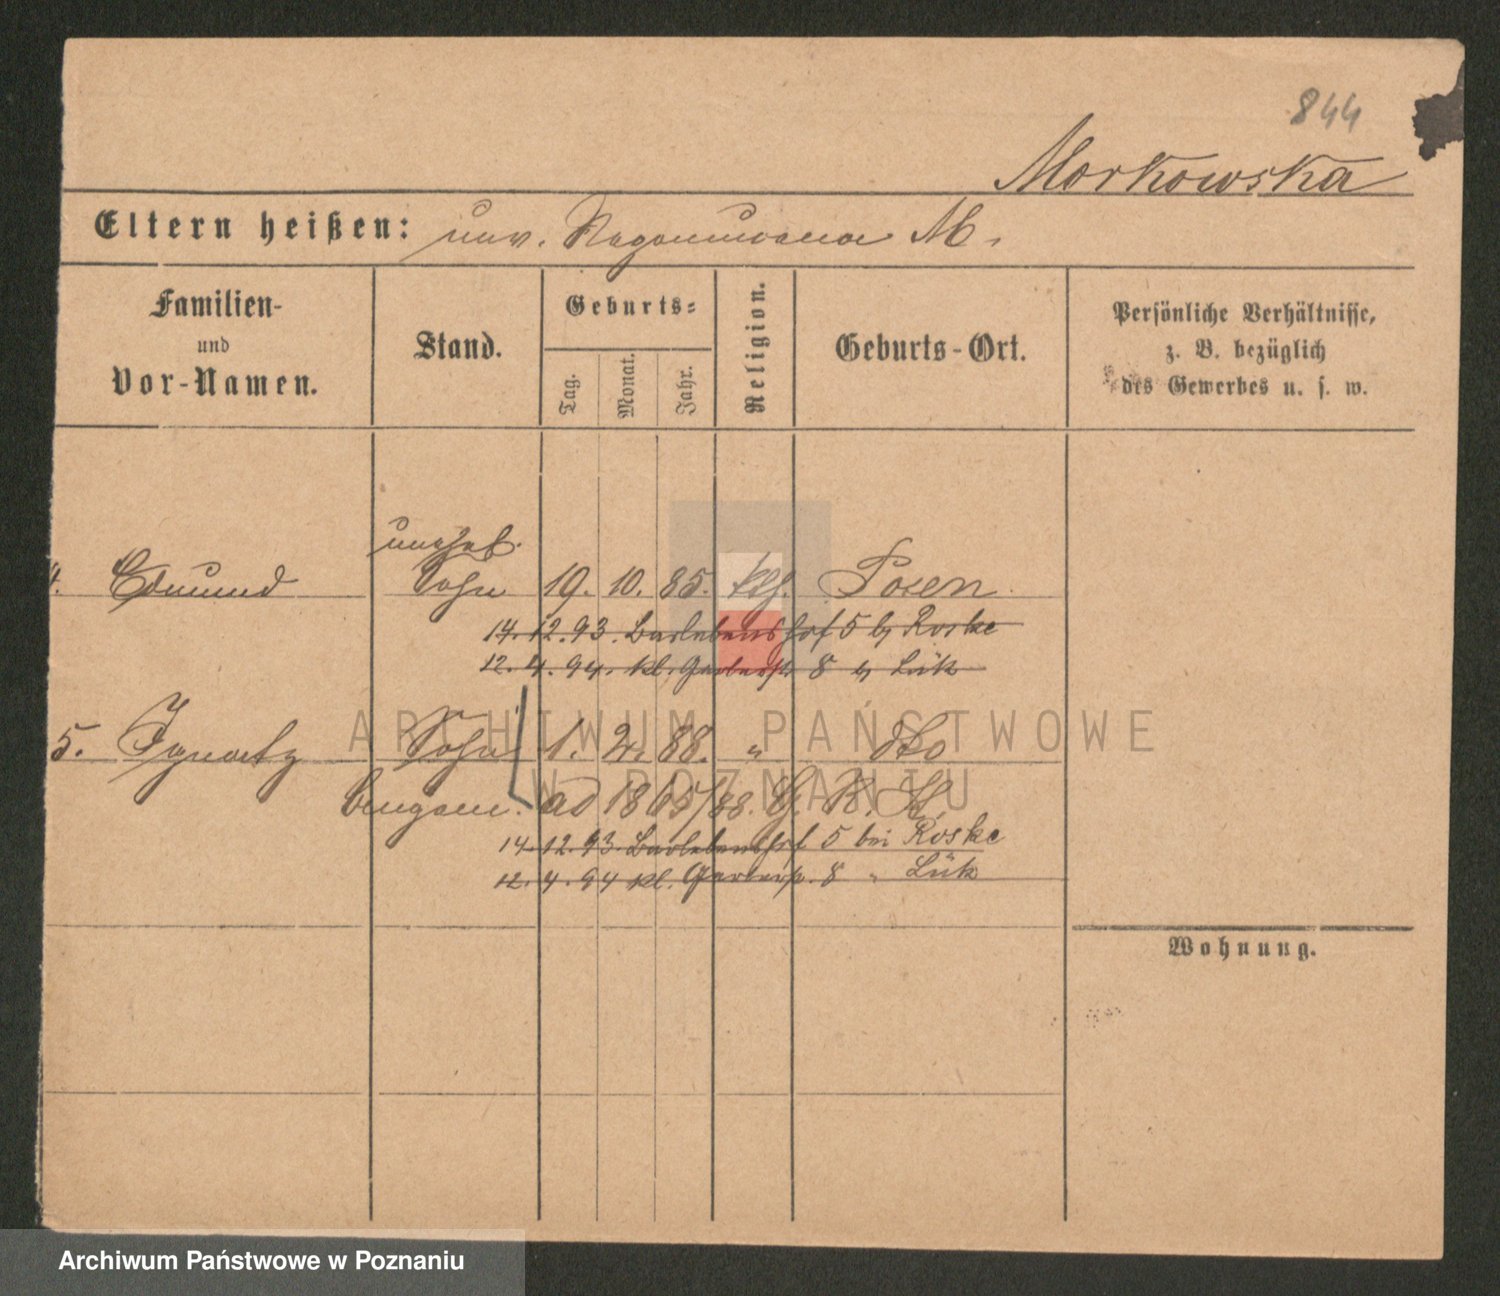 844
Morkowska
Eltern heißen: unv. M.
Familien- und Vor-Namen.
Stand.
Geburts-
Tag. Monat. Jahr.
Religion.
Geburts-Ort.
Persönliche Verhältnisse, z. B. bezüglich des Gewerbes u. s. w.
unehel.
4. Edmund Sohn 19. 10. 85. kth. Posen
14. 12. 93. Barlebenshof 5 b/ Roske
12. 4. 94. kl. Gerberstr. 8 b/ Lük
5. Ignatz Sohn 1. 2. 88. " dto
ad 1865/88.
14. 12. 93. Barlebenshof 5 bei Roske
12. 4. 94 kl. Gerberstr. 8 " Lük
Wohnung.
ARCHIWUM PAŃSTWOWE
W POZNANIU
Archiwum Państwowe w Poznaniu